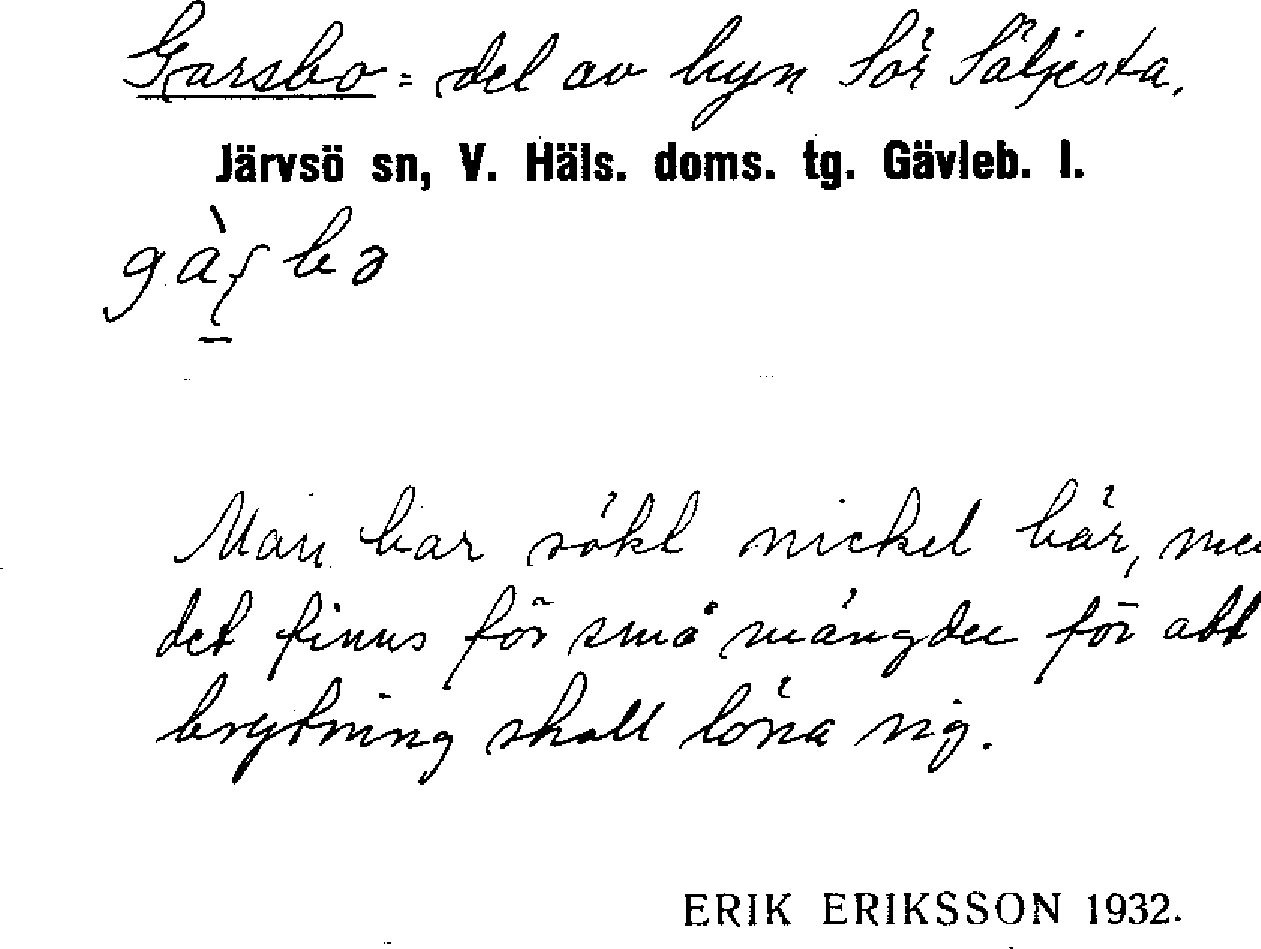 Garsbo = del av byn Sör Säljesta.
Järvsö sn, V. Häls. doms. tg. Gävleb. l.
gàʂbə
Man har sökt nickel här, men
det finns för små mängder för att
brytning skall löna sig.
ERIK ERIKSSON 1932.